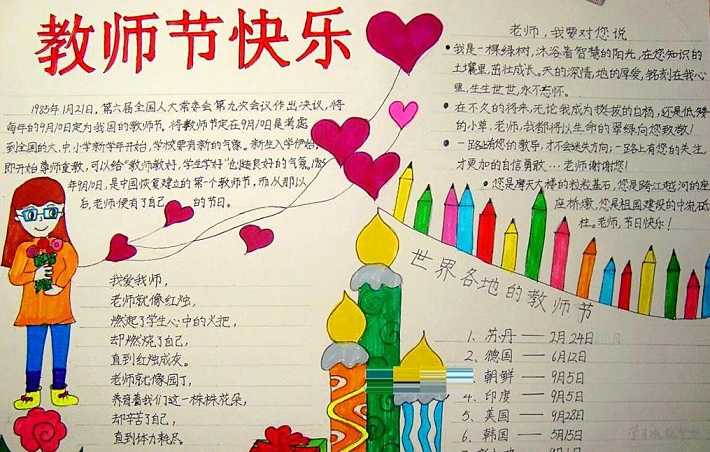 教师节快乐
1985年1月21日，第六届全国人大常委会第九次会议作出决议，将
每年的9月10日定为我国的教师节。将教师节定在9月10日是考虑
到全国的大、中、小学新学年开始，学校要有新的气象。新生入学伊始，
即开始尊师重教，可以给“教师教好，学生学好”创造良好的气氛。1985
年9月10日，是中国恢复建立的第一个教师节，而从那以
后，老师便有了自己的节日。
我爱我师，
老师就像红烛，
燃起了学生心中的火把，
却燃烧了自己，
直到红烛成灰。
老师就像园丁，
养育着我们这一株株花朵，
却辛苦了自己，
直到体力耗尽。
老师，我要对您说
我是一棵绿树，沐浴着智慧的阳光，在您知识的
土壤里，茁壮成长。天的深情，地的厚爱，铭刻在我心
里，生生世世，永不忘怀。
在不久的将来，无论我成为挺拔的白杨，还是低矮
的小草，老师，我都将以生命的翠绿向您致敬！
一路上有您的教导，才不会迷失方向；一路上有您的关注，
才更加的自信勇敢…老师谢谢您！
您是摩天大楼的粒粒基石，您是跨江越河的座
座桥墩，您是祖国建设的中流砥
柱。老师，节日快乐！
世界各地的教师节
1、苏丹——2月24日
2、德国——6月12日
朝鲜——9月5日
4、印度——9月5日
5、美国——9月28日
6、韩国——5月15日